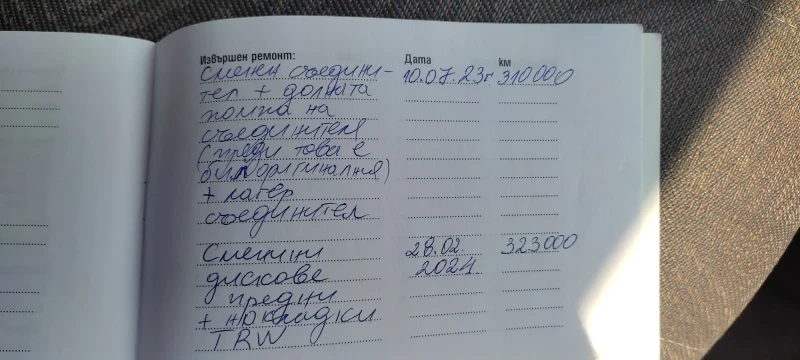 Извършен ремонт: Дата км
Сменен съедини- 10.07.23г 310000
тел + долната
помпа на
съединителя
(преди това е
бил оригиналния)
+ лагер
съединител
Сменини 28.02. 323000
дискове 2024
предни
+ накладки
TRW